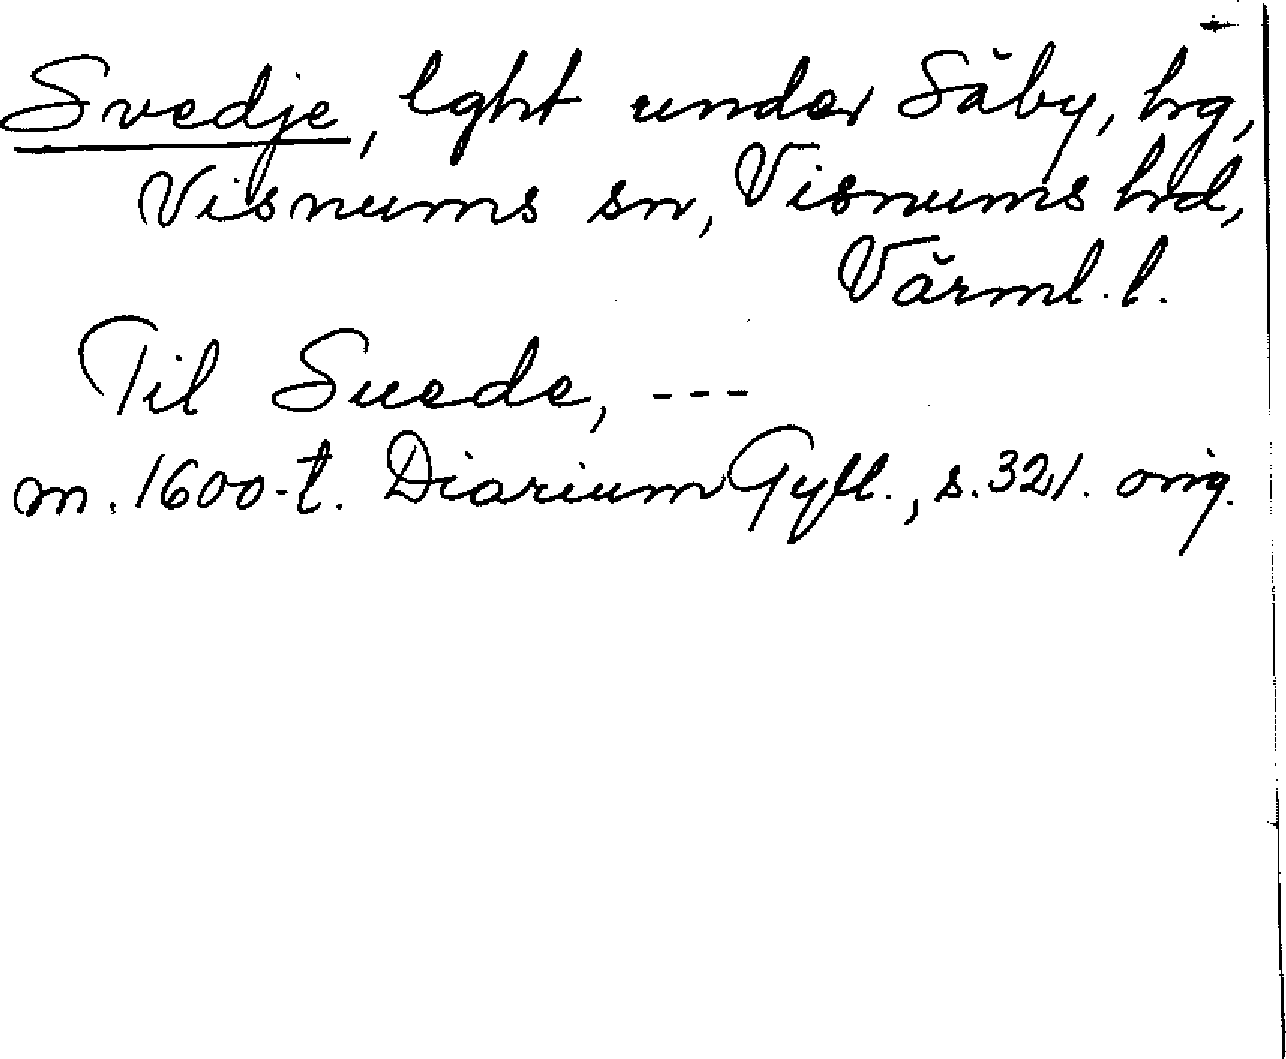 Svedje, lght under Säby, hrg,
Visnums sn, Visnums hrd,
Värml. l.
Til Suede, ---
m. 1600-t. Diarium Gyll., s. 321. orig.